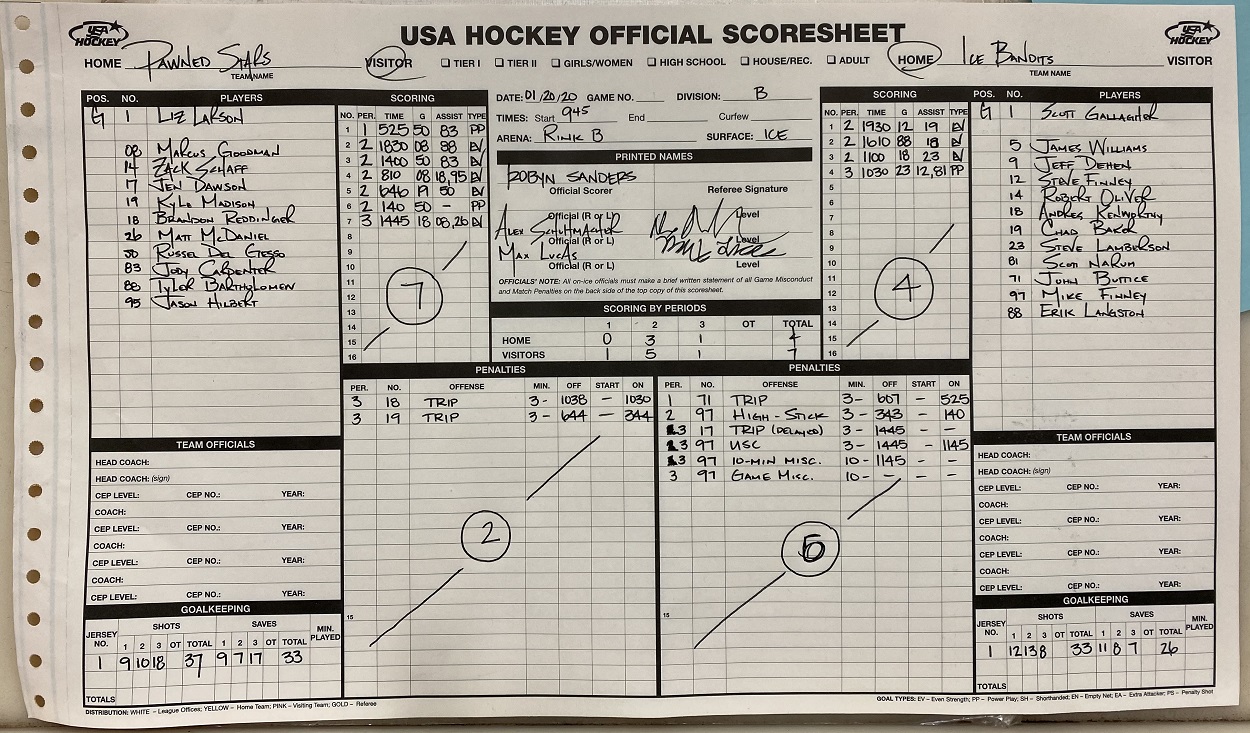 USA HOCKEY
USA HOCKEY OFFICIAL SCORESHEET
USA HOCKEY
HOME PAWNED STARS VISITOR
TEAM NAME
☐ TIER I ☐ TIER II ☐ GIRLS/WOMEN ☐ HIGH SCHOOL ☐ HOUSE/REC. ☐ ADULT
HOME ICE BANDITS VISITOR
TEAM NAME
POS. NO. PLAYERS
G 1 LIZ LARSON
08 MARCUS GOODMAN
14 ZACK SCHAFF
17 JEN DAWSON
19 KYLE MADISON
18 BRANDON REDDINGER
26 MATT MCDANIEL
50 RUSSEL DEL GESSO
83 JODY CARPENTER
88 TYLER BARTHOLOMEW
95 JASON HILBERT
SCORING
NO. PER. TIME G ASSIST TYPE
1 1 525 50 83 PP
2 2 1830 08 88 EV
3 2 1400 50 83 EV
4 2 810 08 18,95 EV
5 2 646 19 50 EV
6 2 140 50 - PP
7 3 1445 18 08,26 EV
8
9
10
11
12
13
14
15
16
7
DATE: 01/20/20 GAME NO. DIVISION: B
TIMES: Start 945 End Curfew
ARENA: RINK B SURFACE: ICE
PRINTED NAMES
ROBYN SANDERS
Official Scorer Referee Signature
Official (R or L) Level
ALEX SCHUMACHER
Official (R or L) Level
MAX LUCAS
Official (R or L) Level
OFFICIALS' NOTE: All on-ice officials must make a brief written statement of all Game Misconduct
and Match Penalties on the back side of the top copy of this scoresheet.
SCORING BY PERIODS
1 2 3 OT TOTAL
HOME 0 3 1 4
VISITORS 1 5 1 7
SCORING
NO. PER. TIME G ASSIST TYPE
1 2 1930 12 19 EV
2 2 1610 88 18 EV
3 2 1100 18 23 EV
4 3 1030 23 12,81 PP
5
6
7
8
9
10
11
12
13
14
15
16
4
POS. NO. PLAYERS
G 1 SCOTT GALLAGHER
5 JAMES WILLIAMS
9 JEFF DEHEN
12 STEVE FINNEY
14 ROBERT OLIVER
18 ANDREA KENWORTHY
19 CHAD BAKER
23 STEVE LAMBERSON
81 SCOTT NARUM
71 JOHN BUTTICE
97 MIKE FINNEY
88 ERIK LANGSTON
PENALTIES
PER. NO. OFFENSE MIN. OFF START ON
3 18 TRIP 3- 1038 - 1030
3 19 TRIP 3- 644 - 344
2
15
PENALTIES
PER. NO. OFFENSE MIN. OFF START ON
1 71 TRIP 3- 607 - 525
2 97 HIGH-STICK 3- 343 - 140
3 17 TRIP (DELAYED) 3- 1445 - -
3 97 USC 3- 1445 - 1145
3 97 10-MIN MISC. 10- 1145 - -
3 97 GAME MISC. 10- - - -
15
TEAM OFFICIALS
HEAD COACH:
HEAD COACH: (sign)
CEP LEVEL: CEP NO.: YEAR:
COACH:
CEP LEVEL: CEP NO.: YEAR:
COACH:
CEP LEVEL: CEP NO.: YEAR:
COACH:
CEP LEVEL: CEP NO.: YEAR:
GOALKEEPING
JERSEY NO. SHOTS SAVES MIN. PLAYED
1 2 3 OT TOTAL 1 2 3 OT TOTAL
1 9 10 18 37 9 7 17 33
TOTALS
TEAM OFFICIALS
HEAD COACH:
HEAD COACH: (sign)
CEP LEVEL: CEP NO.: YEAR:
COACH:
CEP LEVEL: CEP NO.: YEAR:
COACH:
CEP LEVEL: CEP NO.: YEAR:
COACH:
CEP LEVEL: CEP NO.: YEAR:
GOALKEEPING
JERSEY NO. SHOTS SAVES MIN. PLAYED
1 2 3 OT TOTAL 1 2 3 OT TOTAL
1 12 13 8 33 11 8 7 26
TOTALS
DISTRIBUTION: WHITE – League Offices; YELLOW – Home Team; PINK – Visiting Team; GOLD – Referee
GOAL TYPES: EV – Even Strength; PP – Power Play; SH – Shorthanded; EN – Empty Net; EA – Extra Attacker; PS – Penalty Shot